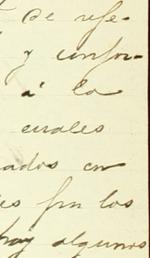 de refe-
y confor-
á la
cuales
ados en
es fin los
hay algunos